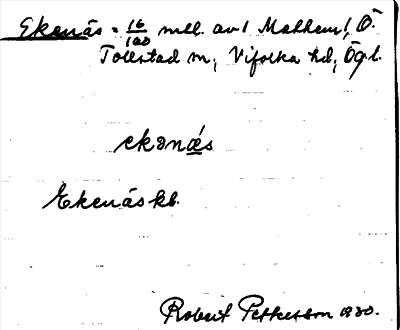 Ekenäs = 16/100 mtl. av 1 Malhem, Ö.
Tollstad sn, Vifolka hd, Ögl.
ekənǽs
Ekenäs kb.
Robert Pettersson 1930.